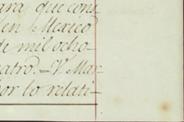 ara que cons
en Mexico
de mil ocho-
uatro. = V. Mar-
por lo relati-